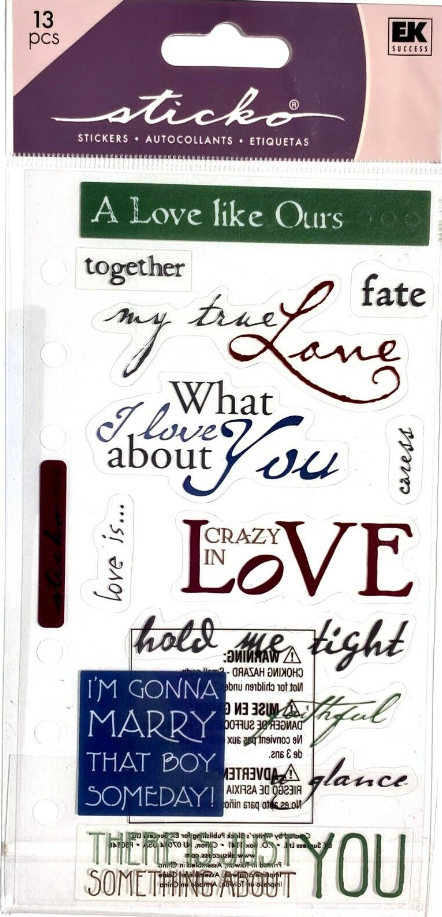 13
pcs
EK
SUCCESS
sticko®
STICKERS • AUTOCOLLANTS • ETIQUETAS
A Love like Ours
together
fate
my true Love
What
I love
about You
caress
love is...
CRAZY
IN
LoVE
hold me tight
WARNING:
CHOKING HAZARD - Small parts
Not for children under
I'M GONNA
MARRY
THAT BOY
SOMEDAY!
faithful
MISE EN
DANGER DE SUFFOC
Ne convient pas aux
de 3 ans.
a glance
ADVERTEN
RIESGO DE ASFIXIA
No es apto para niños
THERE'S JUST
SOMETHING ABOUT
YOU
www.eksuccess.com